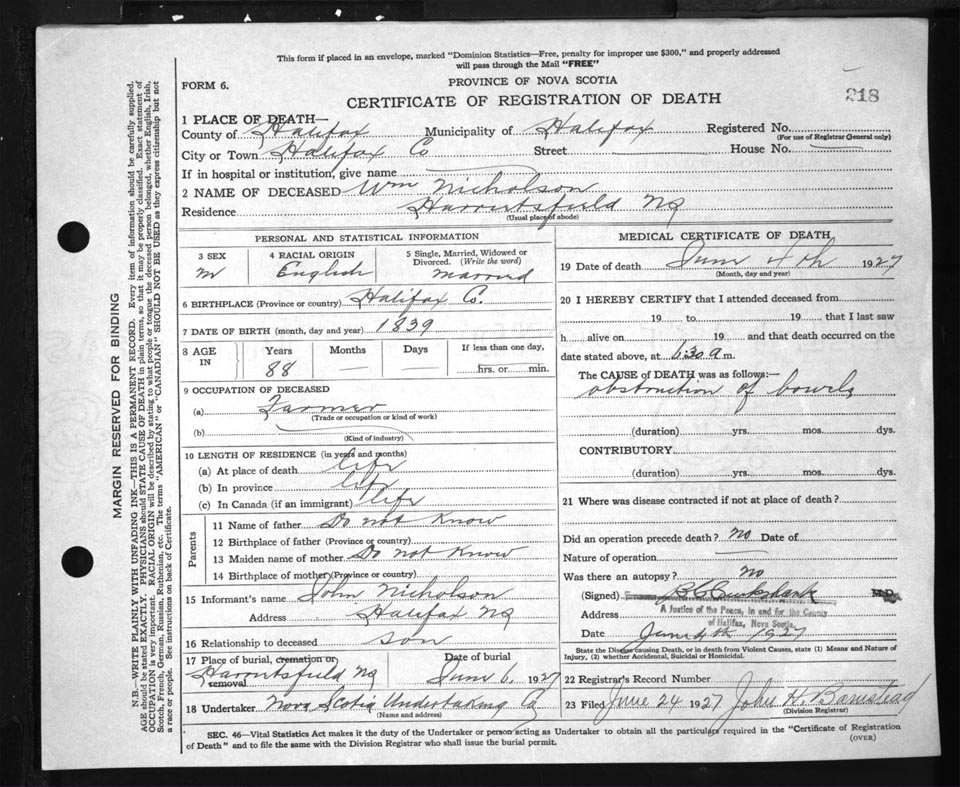 This form if placed in an envelope, marked "Dominion Statistics—Free, penalty for improper use $300," and properly addressed
will pass through the Mail "FREE"
FORM 6.
PROVINCE OF NOVA SCOTIA
CERTIFICATE OF REGISTRATION OF DEATH
218
1 PLACE OF DEATH—
County of Halifax Municipality of Halifax Registered No.
(For use of Registrar General only)
City or Town Halifax Co Street House No.
If in hospital or institution, give name
2 NAME OF DECEASED Wm Nicholson
Residence Harrietsfield NS
(Usual place of abode)
PERSONAL AND STATISTICAL INFORMATION
3 SEX
m
4 RACIAL ORIGIN
English
5 Single, Married, Widowed or
Divorced. (Write the word)
married
6 BIRTHPLACE (Province or country) Halifax Co.
7 DATE OF BIRTH (month, day and year) 1839
8 AGE
IN
Years
88
Months
—
Days
If less than one day,
hrs. or min.
9 OCCUPATION OF DECEASED
(a) Farmer
(Trade or occupation or kind of work)
(b)
(Kind of industry)
10 LENGTH OF RESIDENCE (in years and months)
(a) At place of death life
(b) In province life
(c) In Canada (if an immigrant) life
Parents
11 Name of father Do not Know
12 Birthplace of father (Province or country)
13 Maiden name of mother Do not Know
14 Birthplace of mother (Province or country)
15 Informant's name John Nicholson
Address Halifax NS
16 Relationship to deceased son
17 Place of burial, cremation or
removal
Harrietsfield NS
Date of burial
June 6, 1927
18 Undertaker Nova Scotia Undertaking Co
(Name and address)
MEDICAL CERTIFICATE OF DEATH
19 Date of death June 4th 1927
(Month, day and year)
20 I HEREBY CERTIFY that I attended deceased from
19 to 19 that I last saw
h alive on 19 and that death occurred on the
date stated above, at 6:30 a m.
The CAUSE OF DEATH was as follows:—
obstruction of bowels
(duration) yrs. mos. dys.
CONTRIBUTORY
(duration) yrs. mos. dys.
21 Where was disease contracted if not at place of death?
Did an operation precede death? no Date of
Nature of operation
Was there an autopsy? no
(Signed) M.D.
Address A Justice of the Peace, in and for the County
of Halifax, Nova Scotia.
Date June 4th 1927
State the Disease causing Death, or in death from Violent Causes, state (1) Means and Nature of
Injury, (2) whether Accidental, Suicidal or Homicidal.
22 Registrar's Record Number
23 Filed June 24 1927 John H. Barnstead
(Division Registrar)
SEC. 46—Vital Statistics Act makes it the duty of the Undertaker or person acting as Undertaker to obtain all the particulars required in the "Certificate of Registration
of Death" and to file the same with the Division Registrar who shall issue the burial permit.
(OVER)
MARGIN RESERVED FOR BINDING
N.B.—WRITE PLAINLY WITH UNFADING INK—THIS IS A PERMANENT RECORD. Every item of information should be carefully supplied.
AGE should be stated EXACTLY. PHYSICIANS should STATE CAUSE OF DEATH in plain terms, so that it may be properly classified. Exact statement of
OCCUPATION is very important. RACIAL ORIGIN will be described by stating to what people or tongue the deceased person belonged, whether English, Irish,
Scotch, French, German, Russian, Ruthenian, etc. The terms "AMERICAN" or "CANADIAN" SHOULD NOT BE USED as they express citizenship but not
a race or people. See instructions on back of Certificate.